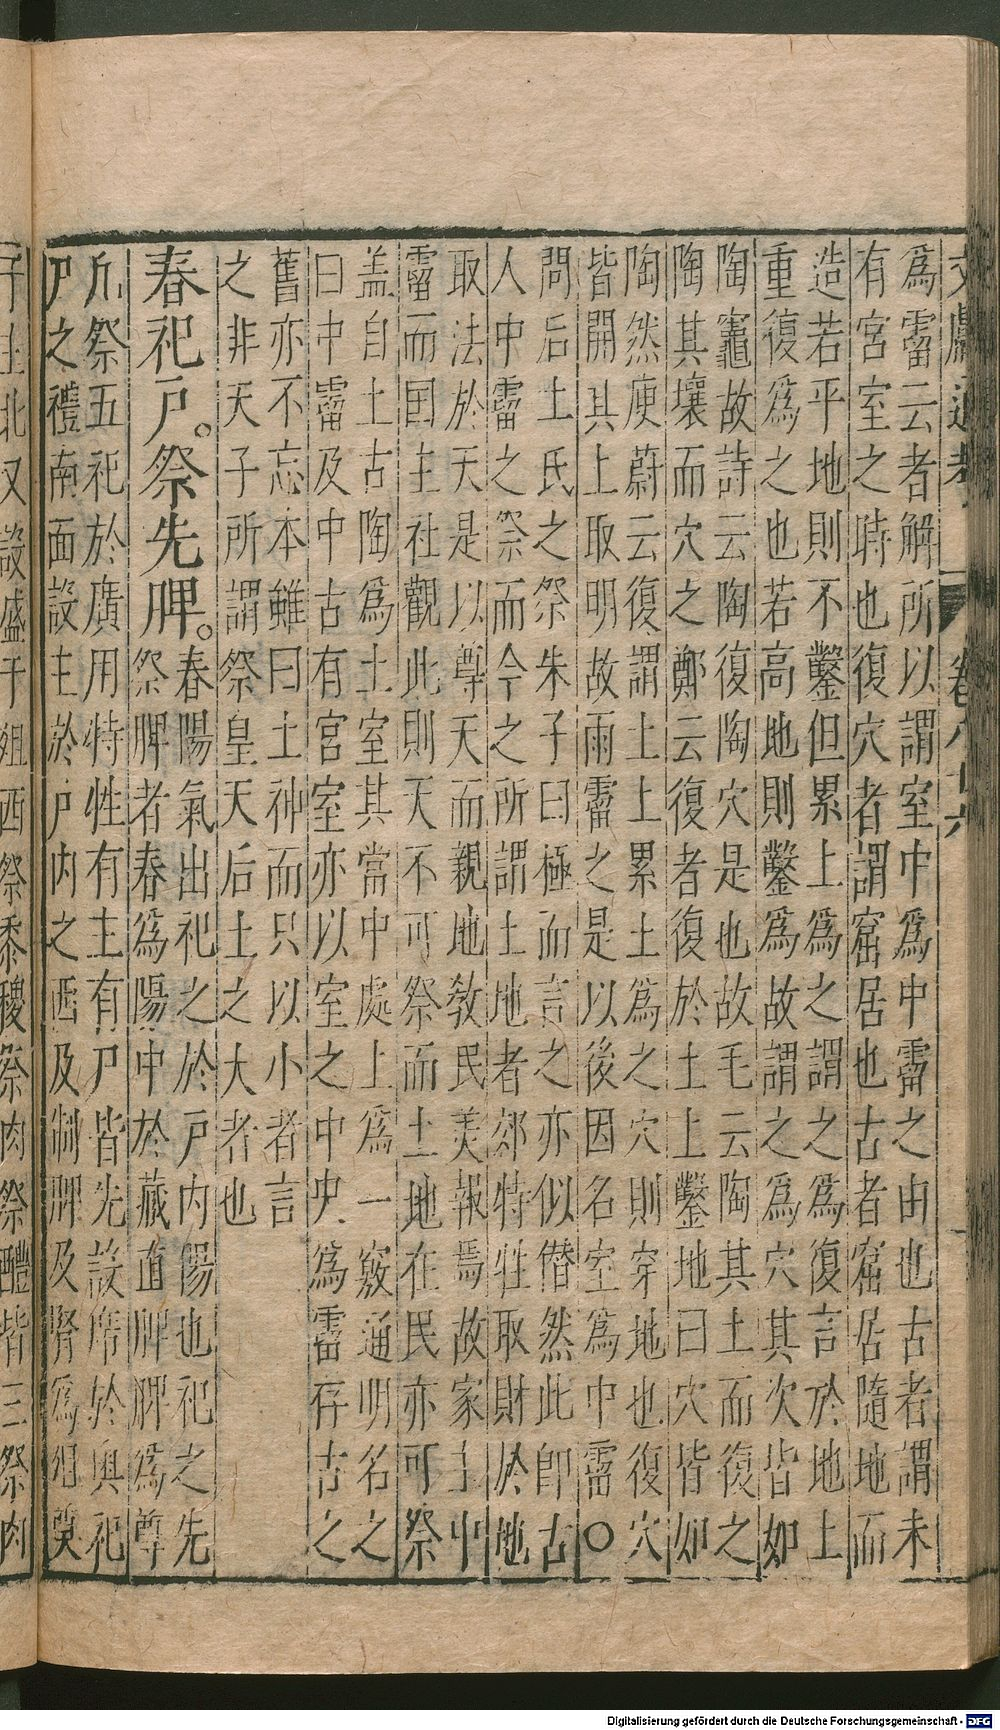 文獻通考 卷八十六
為霤云者解所以謂室中為中霤之由也古者謂未
有宮室之時也復穴者謂窟居也古者窟居隨地而
造若平地則不鑿但累土為之謂之為復言於地上
重復為之也若高地則鑿為故謂之為穴其次皆如
陶竈故詩云陶復陶穴是也故毛云陶其土而復之
陶其壤而穴之鄭云復者復於土上鑿地曰穴皆如
陶然庾蔚云復謂土上累土為之穴則穿地也復穴
皆開其上取明故雨霤之是以後因名室為中霤○
問后土氏之祭朱子曰極而言之亦似僭然此即古
人中霤之祭而今之所謂土地者郊特牲取財於地
取法於天是以尊天而親地敎民美報焉故家主中
霤而国主社觀此則天不可祭而土地在民亦可祭
盖自土古陶為土室其當中處上為一竅通明名之
曰中霤及中古有宮室亦以室之中央為霤存古之
舊亦不忘本雖曰土神而只以小者言
之非天子所謂祭皇天后土之大者也
春祀戶。祭先脾。
春陽氣出祀之於戶內陽也祀之先
祭脾者春為陽中於藏直脾脾為尊
凡祭五祀於廣用特牲有主有尸皆先設席於奧祀
尸之禮南面設主於戶內之西及制脾及腎為俎奠
于主北又設盛于俎西祭黍稷祭肉祭醴皆三祭肉
Digitalisierung gefördert durch die Deutsche Forschungsgemeinschaft - DFG